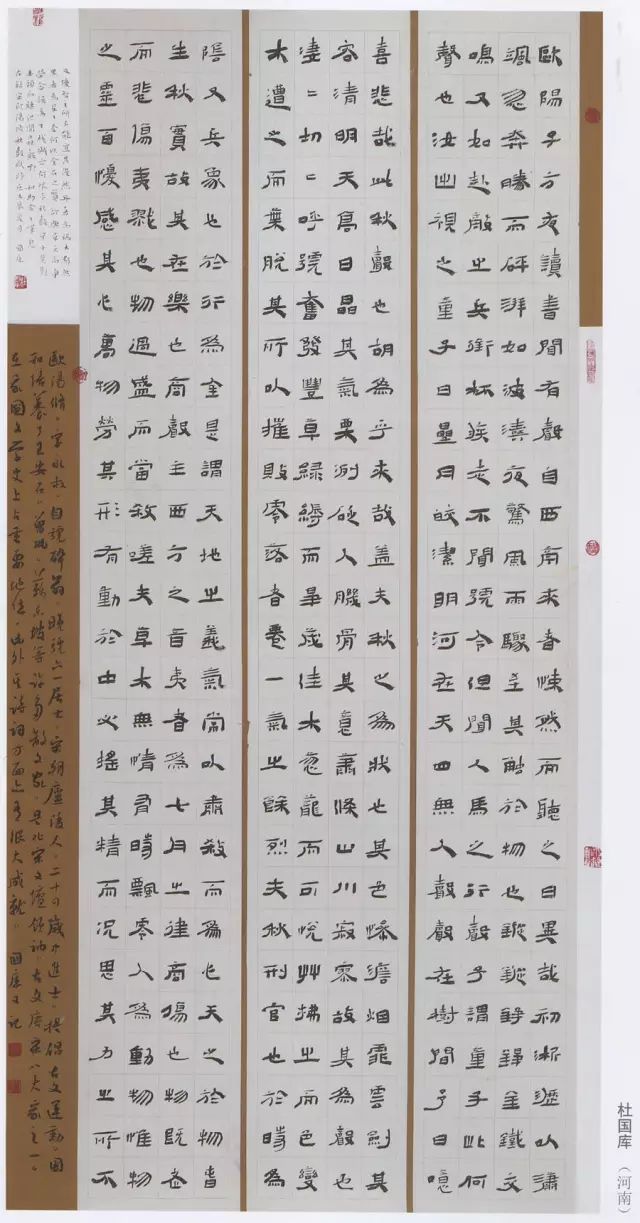 歐陽子方夜讀書聞有聲自西南來者悚然而聽之曰異哉初淅瀝以瀟
颯忽奔騰而砰湃如波濤夜驚風雨驟至其觸於物也鏦鏦錚錚金鐵交
鳴又如赴敵之兵銜枚疾走不聞號令但聞人馬之行聲予謂童子此何
聲也汝出視之童子曰星月皎潔明河在天四無人聲聲在樹間予曰噫
喜悲哉此秋聲也胡為乎來哉蓋夫秋之為狀也其色慘澹烟霏雲斂其
容清明天高日晶其氣栗冽砭人肌骨其意蕭條山川寂寥故其為聲也
淒〻切〻呼號奮發豐草綠縟而爭茂佳木蔥蘢而可悅艸拂之而色變
木遭之而葉脫其所以摧敗零落者乃一氣之餘烈夫秋刑官也於時為
陰又兵象也於行為金是謂天地之義氣常以肅殺而為心天之於物春
生秋實故其在樂也商聲主西方之音夷者為七月之律商傷也物既老
而悲傷夷戮也物過盛而當殺嗟夫草木無情有時飄零人為動物惟物
之靈百憂感其心萬物勞其形有動於中必搖其精而況思其力之所不
歐陽脩，字永叔，自號醉翁，晚號六一居士，宋朝廬陵人，二十四歲中進士，提倡古文運動，因
和培養了王安石、曾巩、蘇東坡等許多散文家，是北宋文壇領袖，古文唐宋八大家之一。
在我國文學史上占重要地位，此外其詩詞方面亦有很大成就。國庫又記
杜国库（河南）